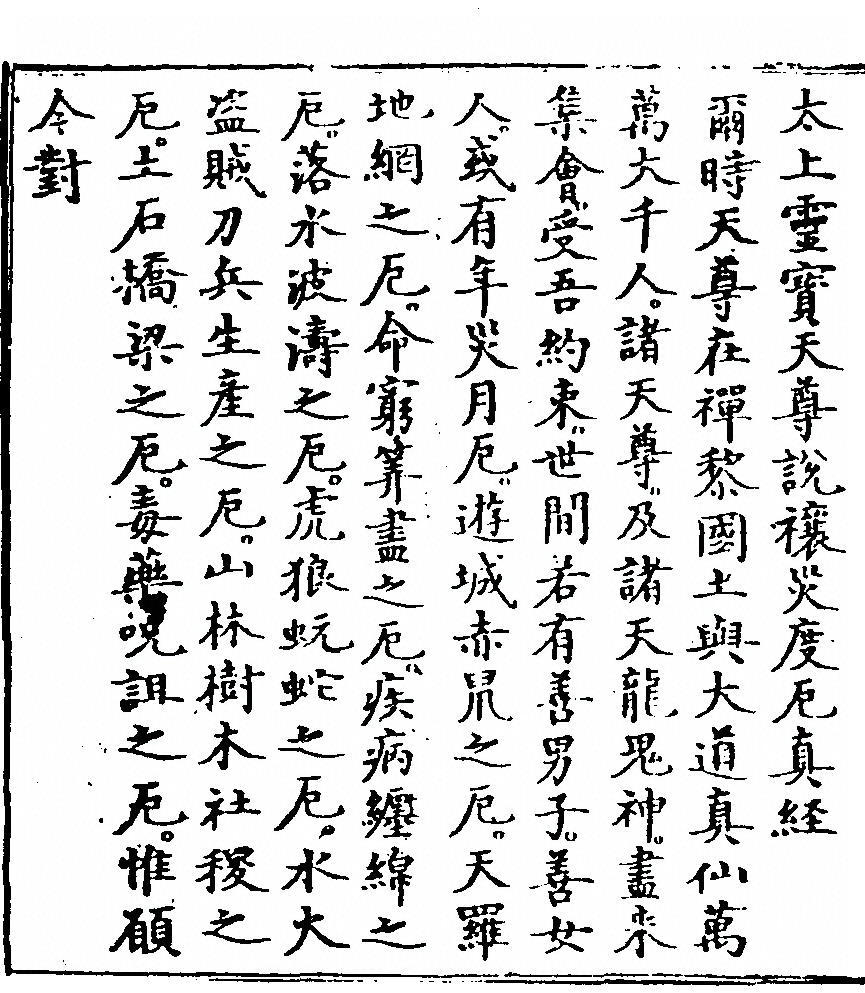 太上靈寶天尊說禳災度厄真経
爾時天尊在禪黎國土與大道真仙萬
萬大千人。諸天尊及諸天龍鬼神。盡来
集會受吾約束世間若有善男子。善女
人。或有年災月厄。遊城赤鼠之厄。天羅
地網之厄。命窮筭盡之厄。疾病纏綿之
厄。落水波濤之厄。虎狼蚖虵之厄。水大
盗賊刀兵生產之厄。山林樹木社稷之
厄。土石橋梁之厄。毒藥呪詛之厄。惟願
今對